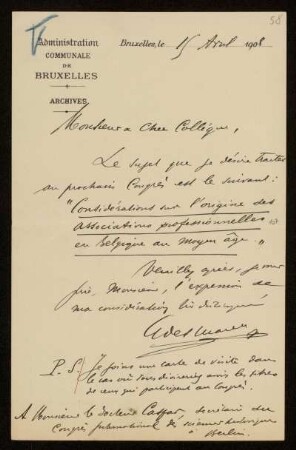 58
Administration
COMMUNALE
DE
BRUXELLES
ARCHIVES
Bruxelles, le 15 Avril 1908
Monsieur & Cher Collègue,
Le sujet que je désire traiter
au prochain Congrès est le suivant:
"Considérations sur l'origine des
Associations professionnelles
en Belgique au moyen âge."
Veuillez agréer, je vous
prie, Monsieur, l'expression de
ma considération bien distinguée
G des Marez
P.S. Je joins une carte de visite dans
le cas où vous donneriez avis les titres
de ceux qui participent au Congrès.
A Monsieur le docteur Caspar, secrétaire du
Congrès international de sciences historiques
à Berlin.